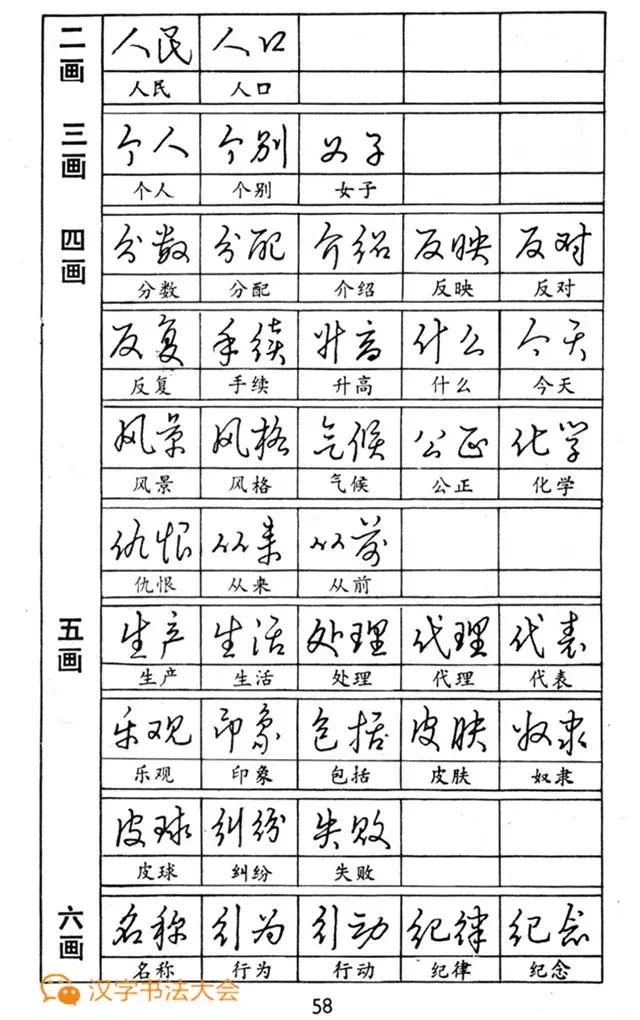 二画
人民 人口
人民 人口
三画
个人 个别 女子
个人 个别 女子
四画
分数 分配 介绍 反映 反对
分数 分配 介绍 反映 反对
反复 手续 升高 什么 今天
反复 手续 升高 什么 今天
风景 风格 气候 公正 化学
风景 风格 气候 公正 化学
仇恨 从来 从前
仇恨 从来 从前
五画
生产 生活 处理 代理 代表
生产 生活 处理 代理 代表
乐观 印象 包括 皮肤 奴隶
乐观 印象 包括 皮肤 奴隶
皮球 纠纷 失败
皮球 纠纷 失败
六画
名称 行为 行动 纪律 纪念
名称 行为 行动 纪律 纪念
汉字书法大会
58